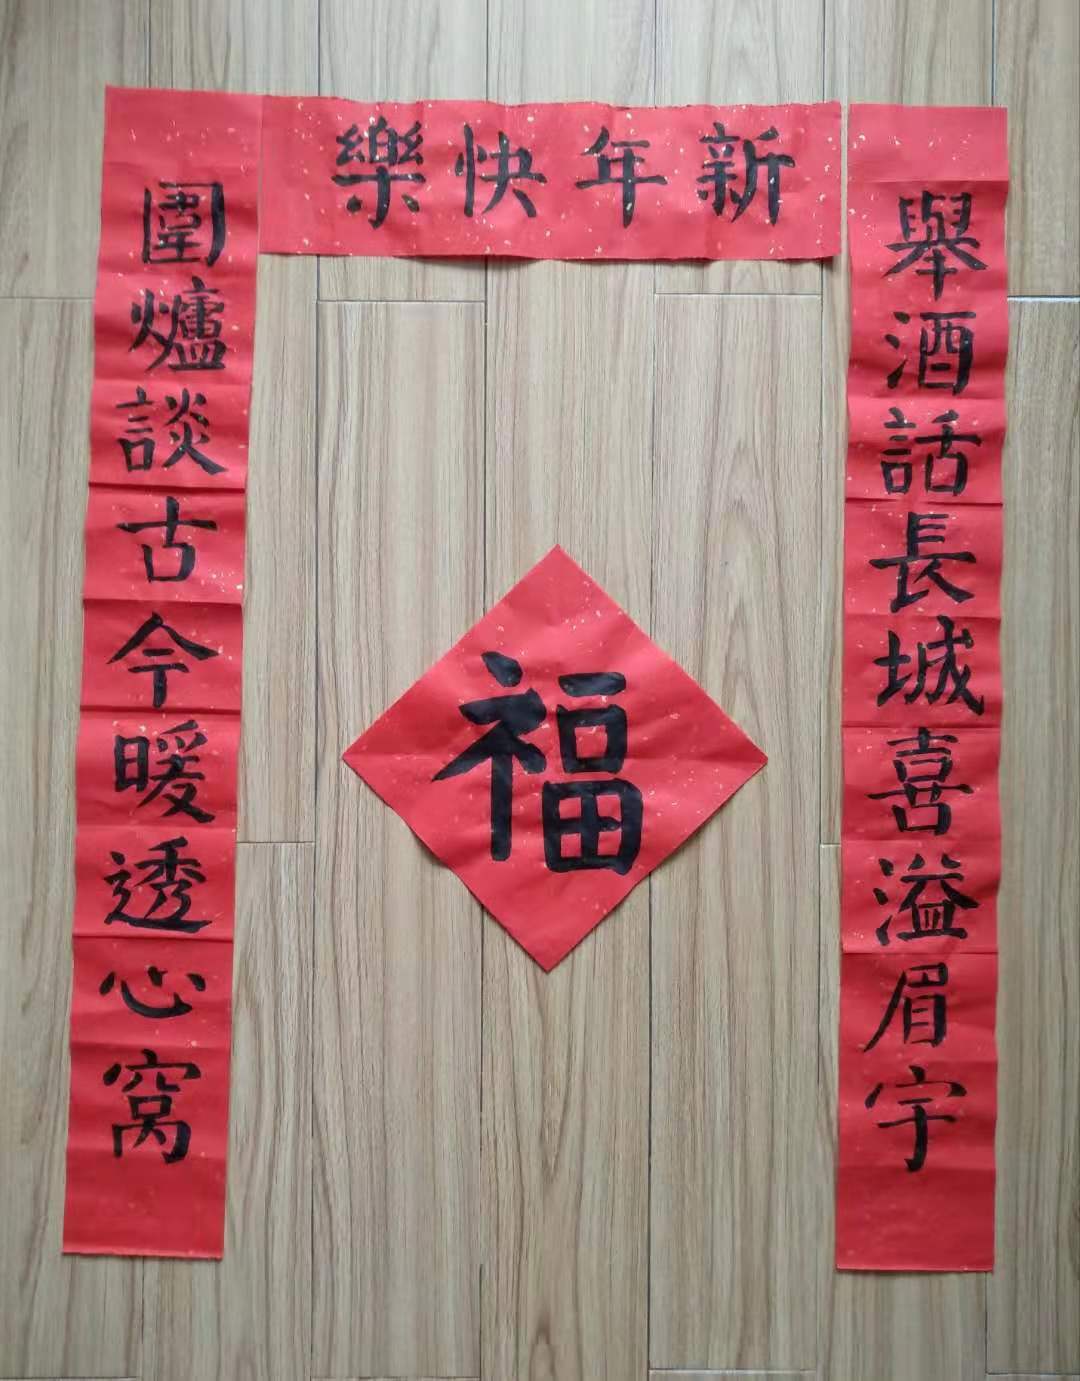 新年快樂
舉酒話長城喜溢眉宇
圍爐談古今暖透心窩
福